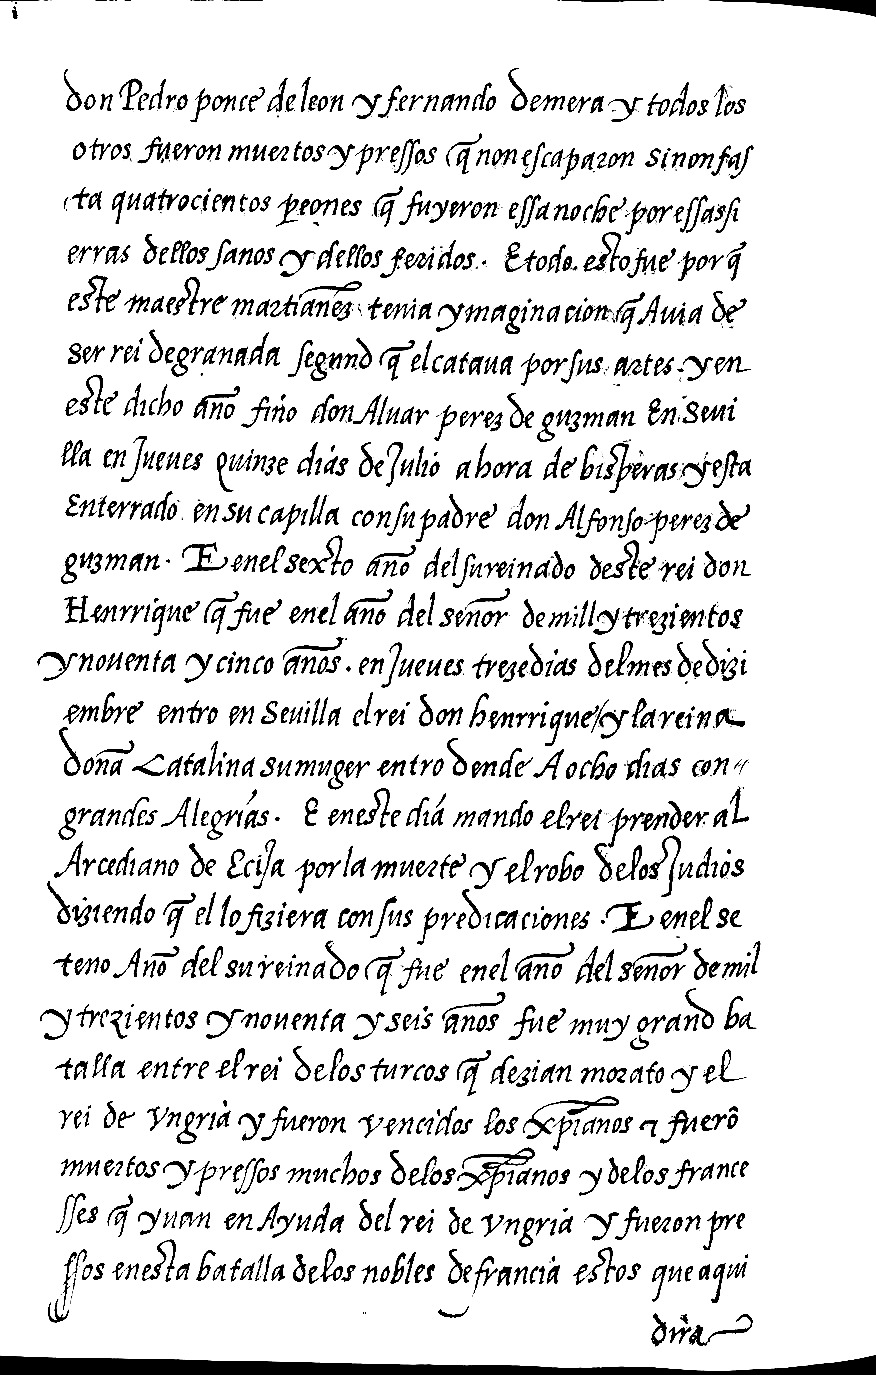 don Pedro ponce de leon y fernando de mera y todos los
otros fueron muertos y pressos q̃ non escaparon sinon fas
ta quatrocientos peones q̃ fuyeron essa noche por essas si
erras dellos sanos y dellos feridos. E todo esto fue por q̃
este maestre martiañez tenia ymaginacion q̃ Auia de
ser rei de granada segund q̃ el cataua por sus artes. y en
este dicho año fiño don Aluar perez de guzman En Seui
lla en Jueues quinze dias de Julio a hora de bisperas y esta
Enterrado en su capilla con su padre don Alfonso perez de
guzman. E en el sexto año del su reinado deste rei don
Henrrique q̃ fue en el año del señor de mill y trezientos
y nouenta y cinco años. en Jueues treze dias del mes de dizi
embre entro en Seuilla el rei don henrrique / y la reina
doña Catalina su muger entro dende A ocho dias con
grandes Alegrias. E en este dia mando el rei prender al
Arcediano de Ecija por la muerte y el robo de los Judios
diziendo q̃ el lo fiziera con sus predicaciones. E en el se
teno Año del su reinado q̃ fue en el año del señor de mil
y trezientos y nouenta y seis años fue muy grand ba
talla entre el rei de los turcos q̃ dezian morato y el
rei de Vngria y fueron vencidos los xp̃ianos ⁊ fuerõ
muertos y pressos muchos de los xp̃ianos y de los france
sses q̃ yuan en Ayuda del rei de vngria y fueron pre
ssos en esta batalla de los nobles de francia estos que aqui
dira